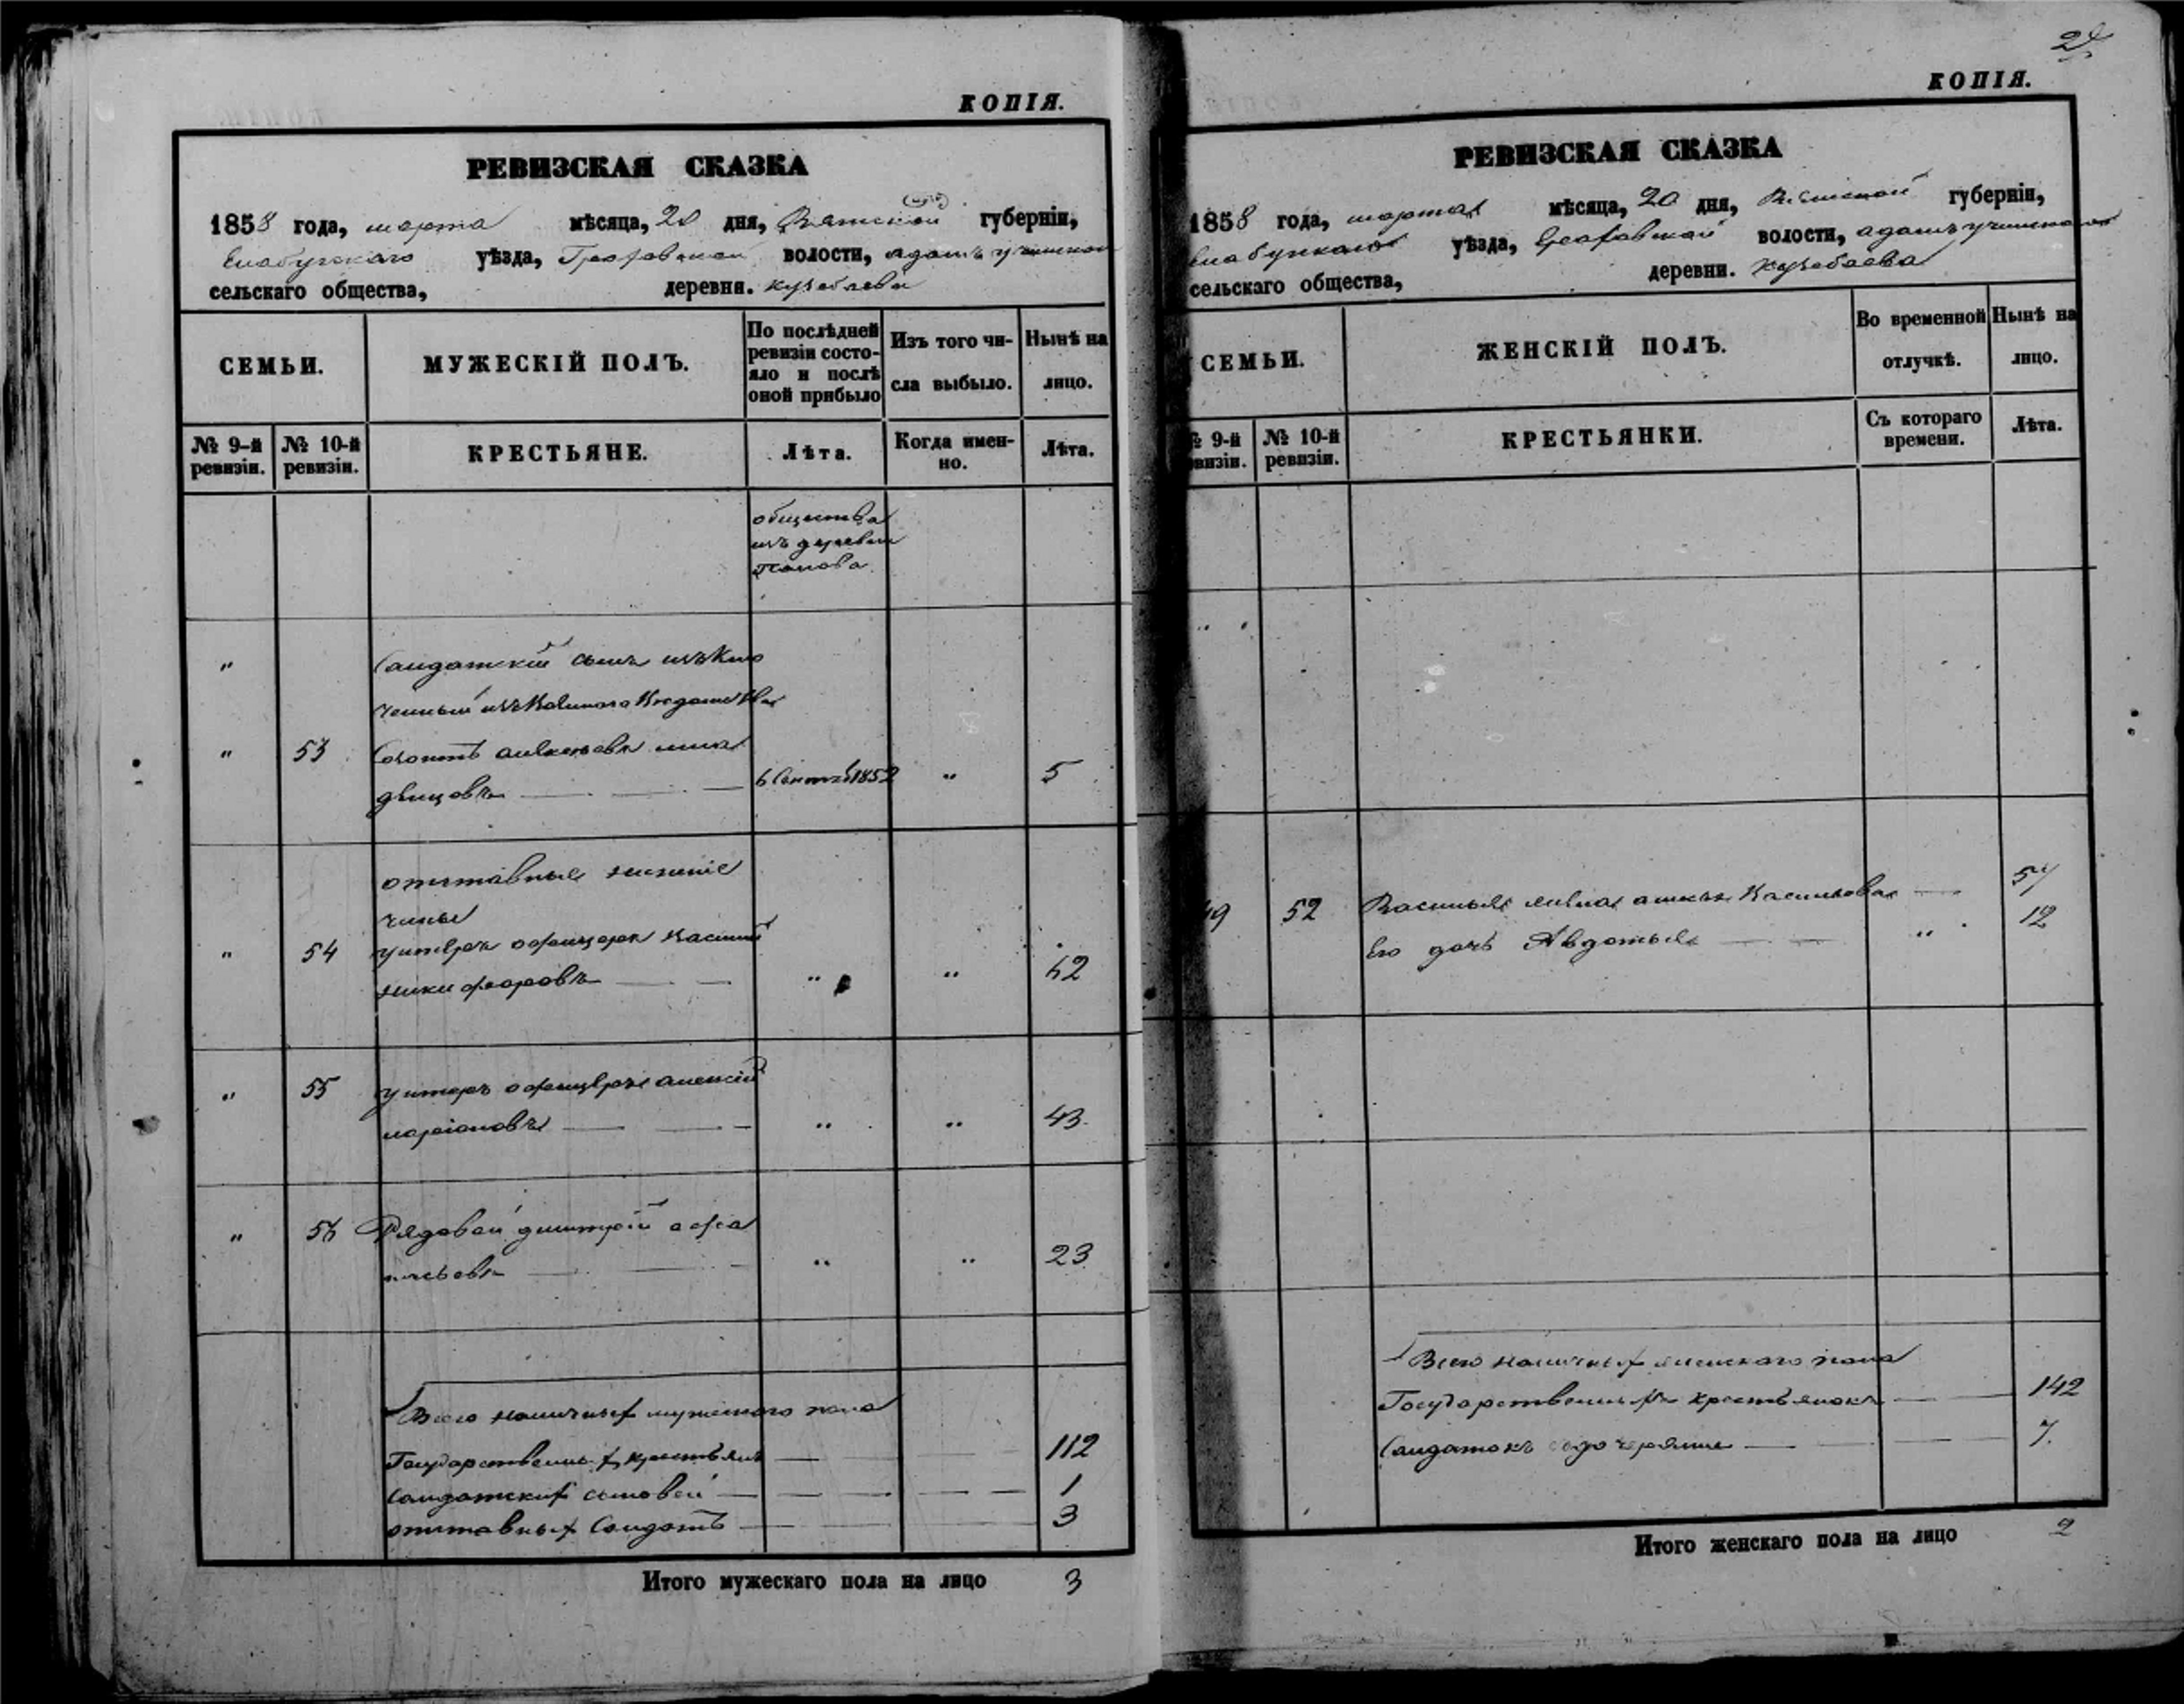 КОПІЯ.
РЕВИЗСКАЯ СКАЗКА
1858 года, марта мѣсяца, 20 дня, Вятской губерніи,
Елабужскаго уѣзда, Граховской волости, адамъ учинскаго
сельскаго общества, деревни. кузебаева
СЕМЬИ.
МУЖЕСКІЙ ПОЛЪ.
По послѣдней ревизіи состояло и послѣ оной прибыло
Изъ того числа выбыло.
Нынѣ на лицо.
№ 9-й ревизіи.
№ 10-й ревизіи.
КРЕСТЬЯНЕ.
Лѣта.
Когда именно.
Лѣта.
общества
изъ деревни
"
Салдатскій сынъ исклю
ченный изъ Военнаго Вѣдомства
" 53
дѣнцовъ 1852 " 5
отставные нижніе
чины
" 54 унтеръ офицеръ Василій
никифоровъ " "
" 55 унтеръ офицеръ алексѣй
" " 43
" 56 Рядовой дмитрій афа
насьевъ " " 23
Всего наличныхъ мужескаго пола
Государственныхъ крестьянъ 112
Салдатскихъ сыновей 1
отставныхъ Салдатъ 3
Итого мужескаго пола на лицо 3
КОПІЯ.
РЕВИЗСКАЯ СКАЗКА
1858 года, марта мѣсяца, 20 дня, Вятской губерніи,
Елабужскаго уѣзда, Граховской волости, адамъ учинскаго
сельскаго общества, деревни. кузебаева
СЕМЬИ.
ЖЕНСКІЙ ПОЛЪ.
Во временной отлучкѣ.
Нынѣ на лицо.
№ 9-й ревизіи.
№ 10-й ревизіи.
КРЕСТЬЯНКИ.
Съ котораго времени.
Лѣта.
49 52 Василья Васильева
Его дочь Авдотья " 12
Всего наличныхъ женскаго пола
Государственныхъ крестьянокъ 142
Салдатокъ 7.
Итого женскаго пола на лицо 2